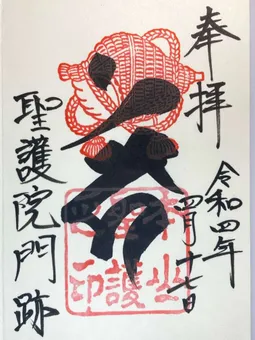 奉拝
令和四年
四月十七日
本山
聖護
院印
聖護院門跡